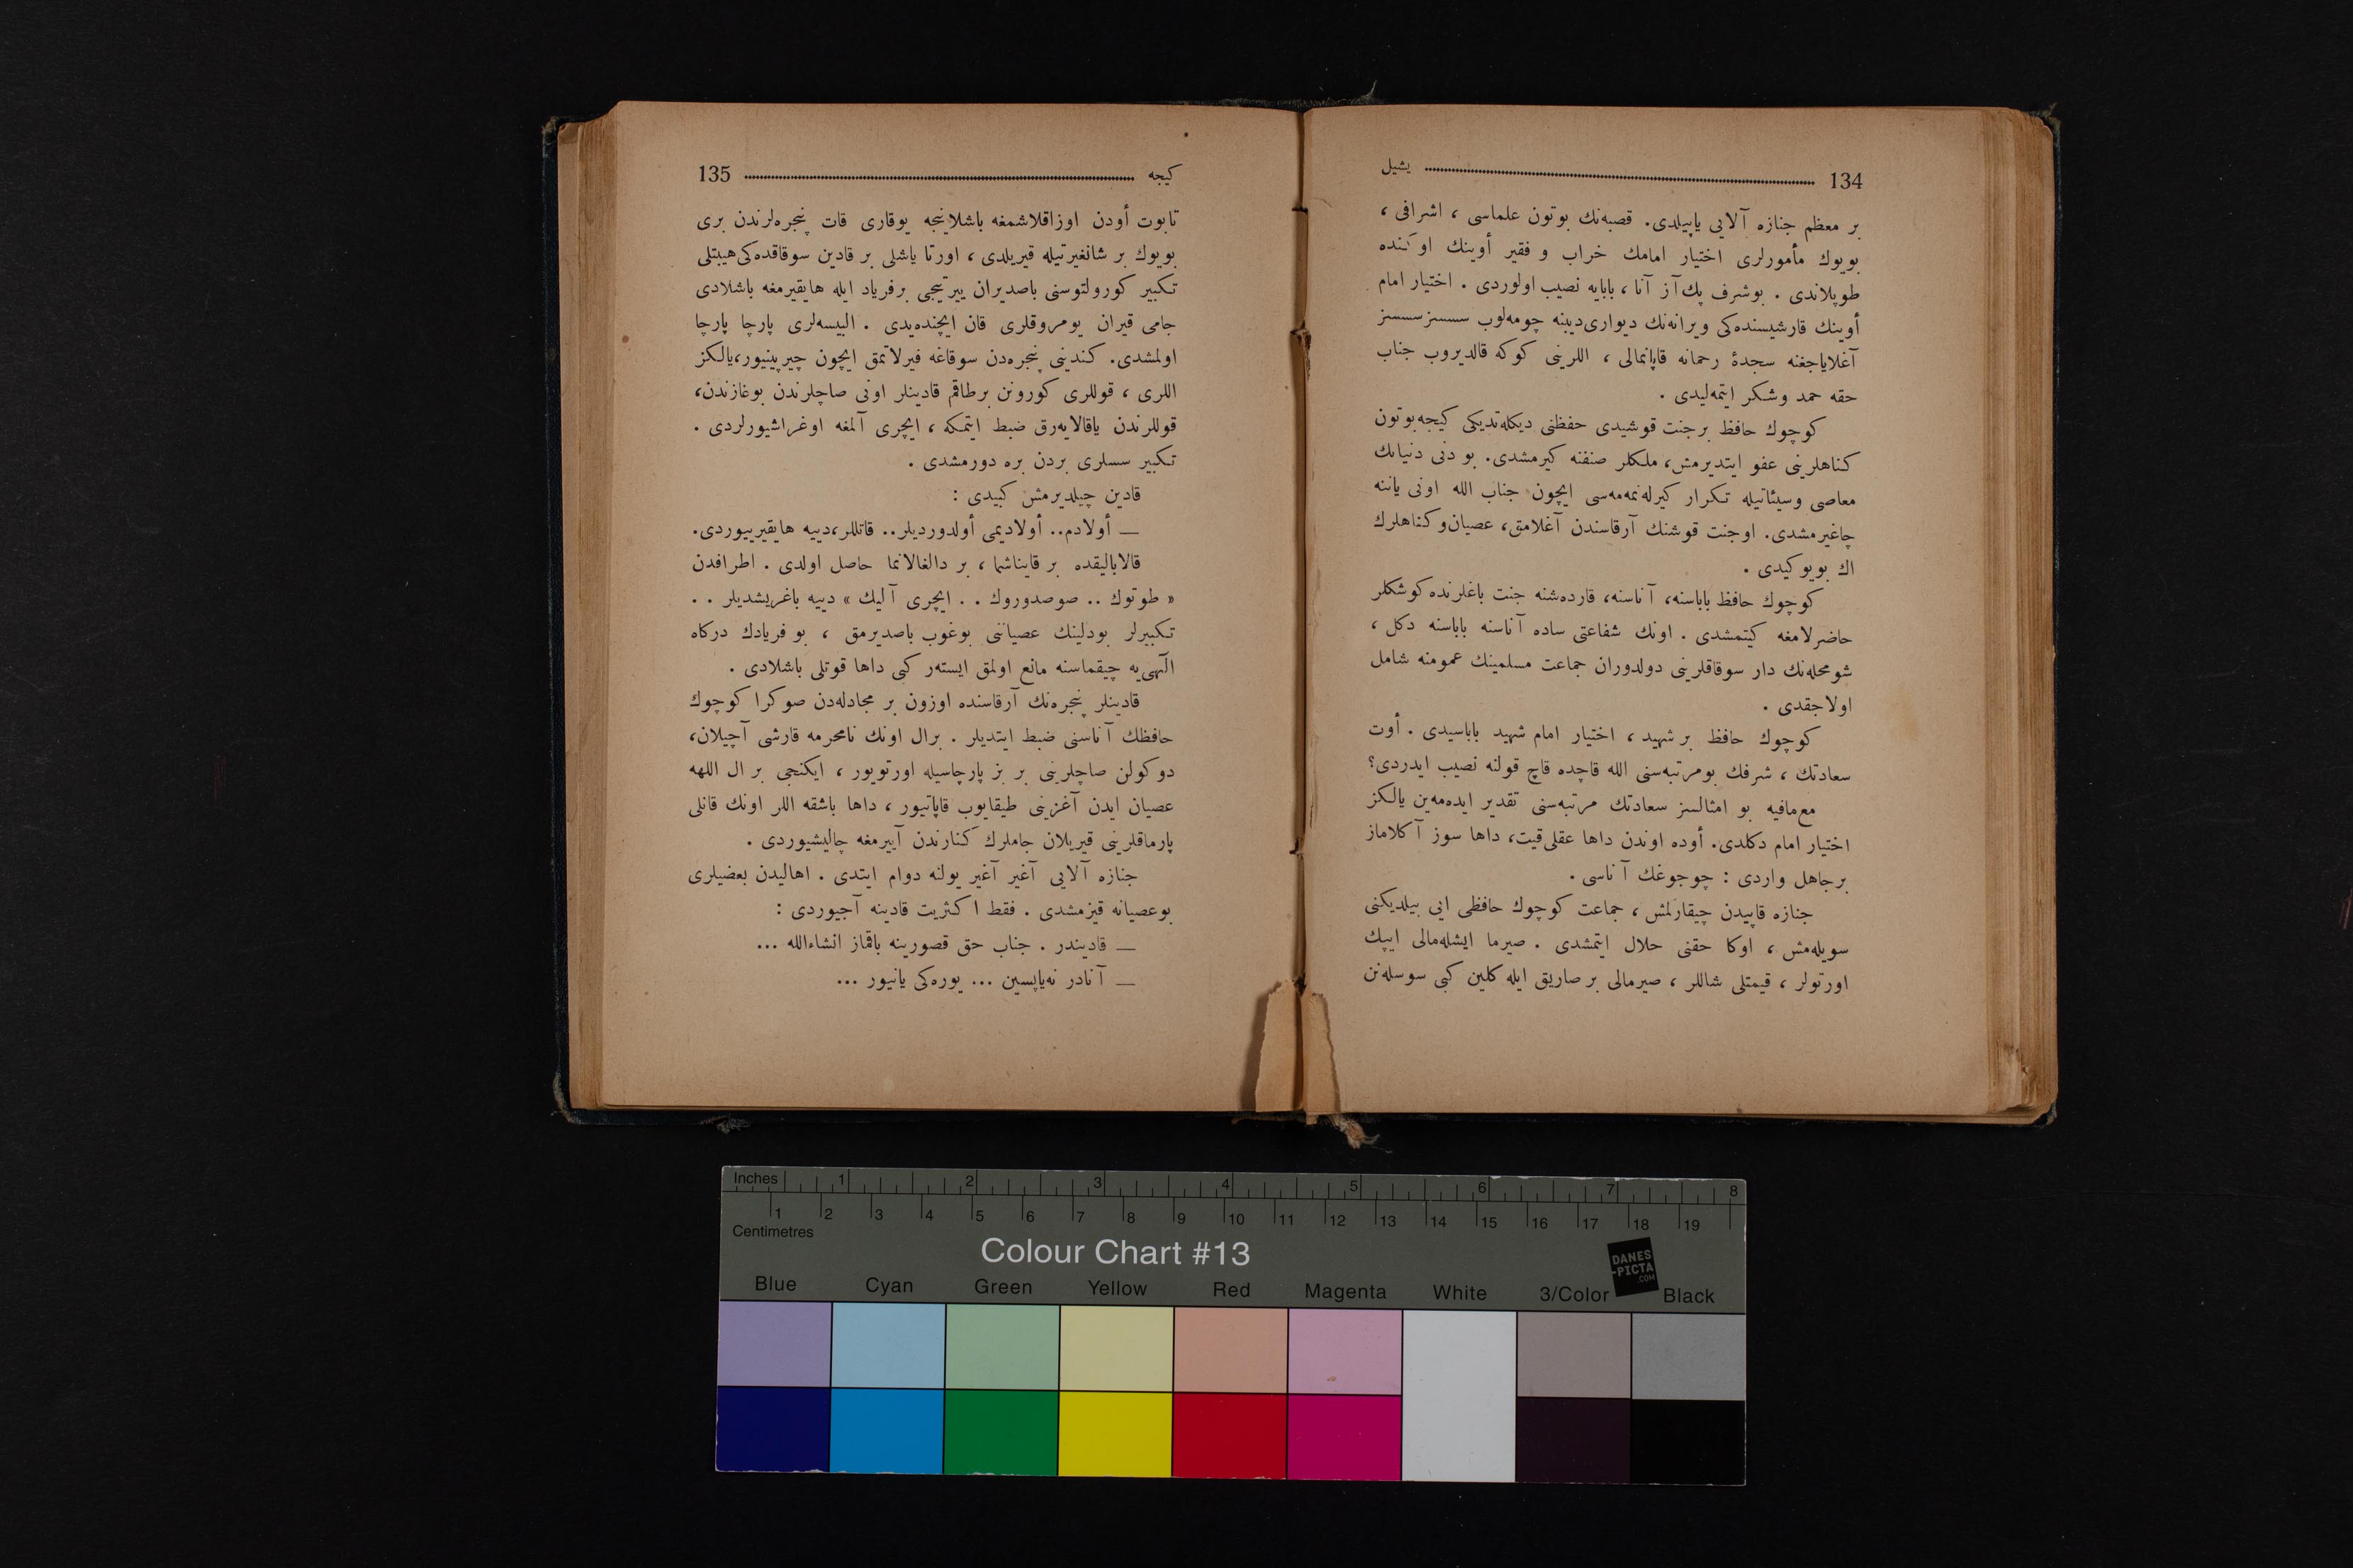 134 یشیل
بر معظم جنازه آلایی یاپیلدی. قصبه‌نك بوتون علماسی ، اشرافی ،
بویوك مأمورلری اختیار امامك خراب و فقیر أوینك اوكنده
طوپلاندی . بوشرف پك آز آنا ، بابایه نصیب اولوردی . اختیار امام
أوینك قارشیسنده‌كی ویرانه‌نك دیواری‌دیبنه چومه‌لوب سسسزسسسز
آغلایاجغنه سجدۀ رحمانه قاپانمالی ، اللرینی كوكه قالدیروب جناب
حقه حمد وشكر ایتمه‌لیدی .
كوچوك حافظ برجنت قوشیدی حفظنی دیكله‌تدیكی كیجه بوتون
كناهلرینی عفو ایتدیرمش، ملكلر صنفنه كیرمشدی. بو دنی دنیانك
معاصی وسیئاتیله تكرار كیرله‌نمه‌مه‌سی ایچون جناب الله اونی یاننه
چاغیرمشدی. اوجنت قوشنك آرقاسندن آغلامق، عصیان‌و كناهلرك
اك بویوكیدی .
كوچوك حافظ باباسنه، آناسنه، قارده‌شنه جنت باغلرنده كوشكلر
حاضرلامغه كیتمشدی . اونك شفاعتی ساده آناسنه باباسنه دكل ،
شومحله‌نك دار سوقاقلرینی دولدوران جماعت مسلمینك عمومنه شامل
اولاجقدی .
كوچوك حافظ بر شهید ، اختیار امام شهید باباسیدی . أوت
سعادتك ، شرفك بومرتبه‌سنی الله قاچده قاچ قولنه نصیب ایدردی؟
مع‌مافیه بو امثالسز سعادتك مرتبه‌سنی تقدیر ایده‌مه‌ین یالكز
اختیار امام دكلدی. أوده اوندن داها عقلی‌قیت، داها سوز آكلاماز
برجاهل واردی : چوجوغك آناسی .
جنازه قاپیدن چیقارلمش ، جماعت كوچوك حافظی ایی بیلدیكنی
سویله‌مش ، اوكا حقنی حلال ایتمشدی . صیرما ایشله‌مالی ایپك
اورتولر ، قیمتلی شاللر ، صیرمالی بر صاریق ایله كلین كبی سوسله‌نن
كیجه 135
تابوت أودن اوزاقلاشمغه باشلاینجه یوقاری قات پنجره‌لرندن بری
بویوك بر شانغیرتیله قیریلدی ، اورتا یاشلی بر قادین سوقاقده‌كی‌هیبتلی
تكبیر كورولتوسنی باصدیران ییرتیجی برفریاد ایله هایقیرمغه باشلادی
جامی قیران یومروقلری قان ایچنده‌یدی . البیسه‌لری پارچا پارچا
اولمشدی. كندینی پنجره‌دن سوقاغه فیرلاتمق ایچون چیرپینیور،یالكز
اللری ، قوللری كورونن برطاقم قادینلر اونی صاچلرندن بوغازندن،
قوللرندن یاقالایه‌رق ضبط ایتمكه ، ایچری آلمغه اوغراشیورلردی .
تكبیر سسلری بردن بره دورمشدی .
قادین چیلدیرمش كبیدی :
— أولادم.. أولادیمی أولدوردیلر.. قاتللر،دییه هایقیرییوردی.
قالابالیقده بر قایناشما ، بر دالغالانما حاصل اولدی . اطرافدن
« طوتوك .. صوصدوروك . . ایچری آلیك » دییه باغریشدیلر . .
تكبیرلر بودلینك عصیاننی بوغوب باصدیرمق ، بو فریادك دركاه
الٓهی‌یه چیقماسنه مانع اولمق ایسته‌ر كبی داها قوتلی باشلادی .
قادینلر پنجره‌نك آرقاسنده اوزون بر مجادله‌دن صوكرا كوچوك
حافظك آناسنی ضبط ایتدیلر . برال اونك نامحرمه قارشی آچیلان،
دوكولن صاچلرینی بر بز پارچاسیله اورتویور ، ایكنجی بر ال اللهه
عصیان ایدن آغزینی طیقایوب قاپاتیور ، داها باشقه اللر اونك قانلی
پارماقلرینی قیریلان جاملرك كنارندن آییرمغه چالیشیوردی .
جنازه آلایی آغیر آغیر یولنه دوام ایتدی . اهالیدن بعضیلری
بوعصیانه قیزمشدی . فقط اكثریت قادینه آجیوردی :
— قادیندر . جناب حق قصورینه باقماز انشاءالله ...
— آنادر نه‌یاپسین ... یوره‌كی یانیور ...
Inches 1 2 3 4 5 6 7 8
1 2 3 4 5 6 7 8 9 10 11 12 13 14 15 16 17 18 19
Centimetres
Colour Chart #13
DANES
-PICTA
.COM
Blue Cyan Green Yellow Red Magenta White 3/Color Black